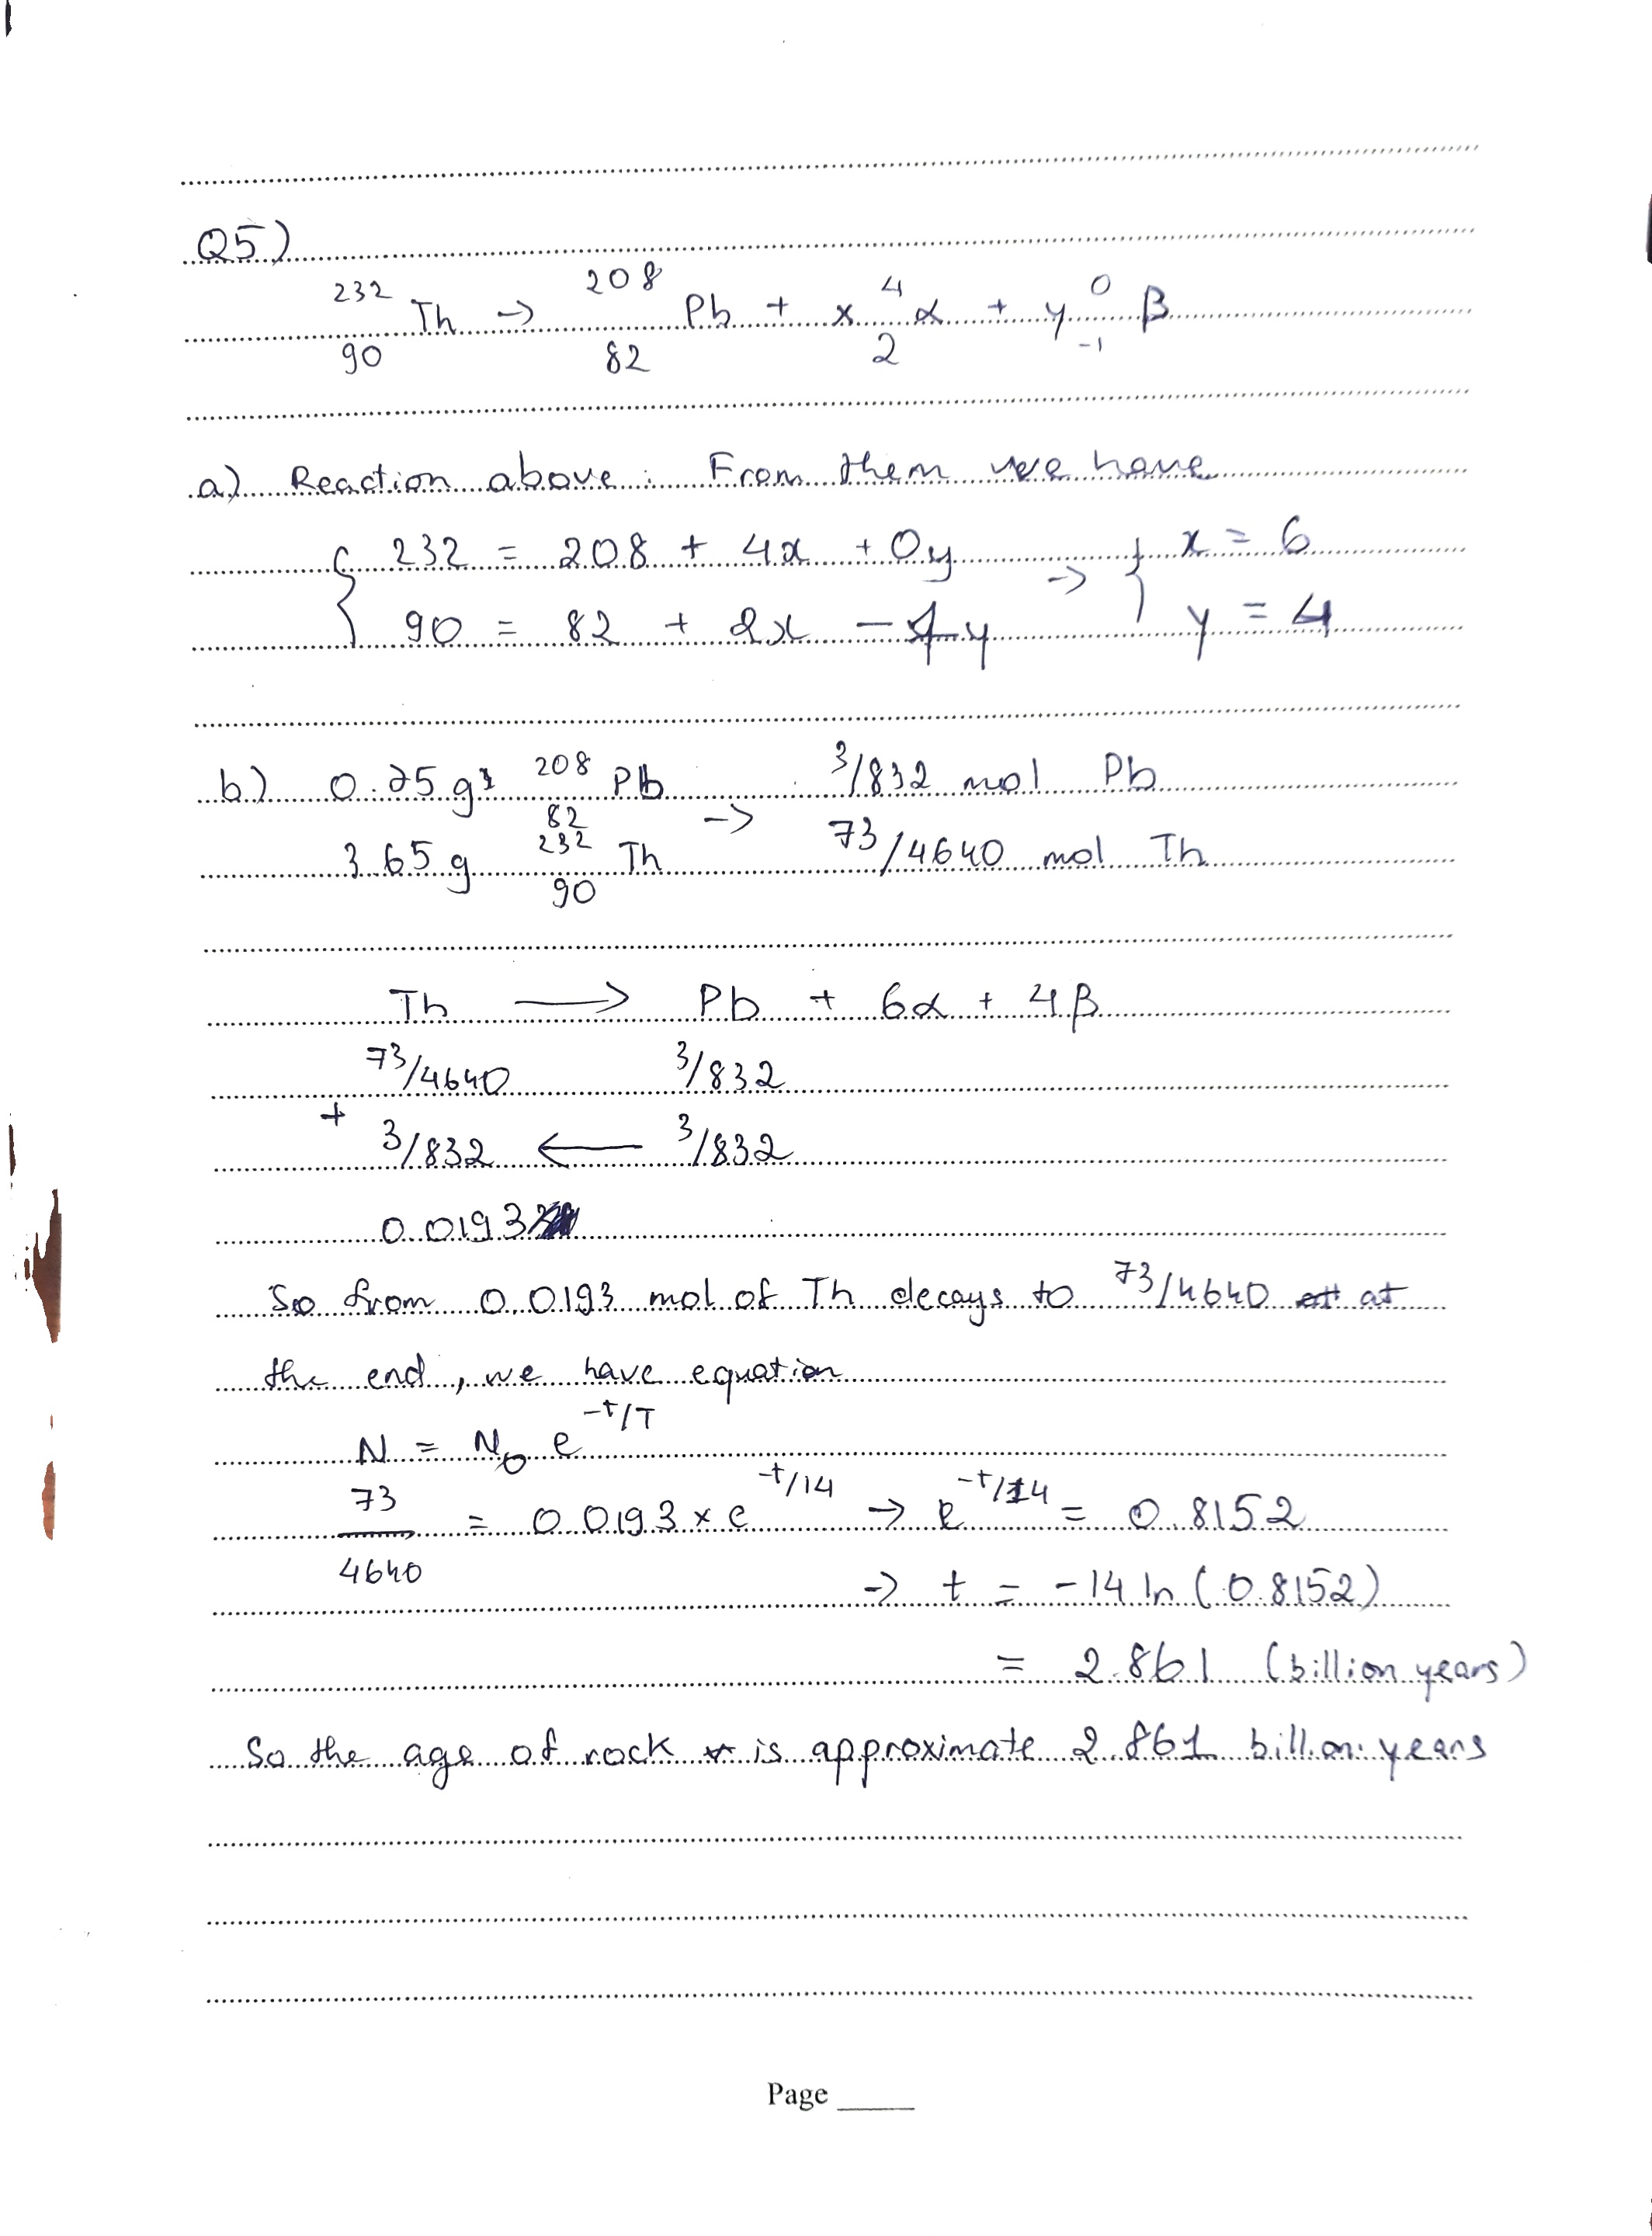 Q5)
²³²₉₀ Th → ²⁰⁸₈₂ Pb + x ⁴₂ α + y ⁰₋₁ β
a) Reaction above. From them we have
{ 232 = 208 + 4x + 0y → } x = 6
{ 90 = 82 + 2x - 1y } y = 4
b) 0.75 g ²⁰⁸₈₂ Pb → 3/832 mol Pb
3.65 g ²³²₉₀ Th 73/4640 mol Th
Th → Pb + 6α + 4β
73/4640 3/832
+ 3/832 ← 3/832
0.0193
So from 0.0193 mol of Th decays to 73/4640 at
the end, we have equation
N = N₀ e^(-t/T)
73/4640 = 0.0193 × e^(-t/14) → e^(-t/14) = 0.8152
→ t = -14 ln (0.8152)
= 2.861 (billion years)
So the age of rock is approximate 2.861 billion years
Page ____